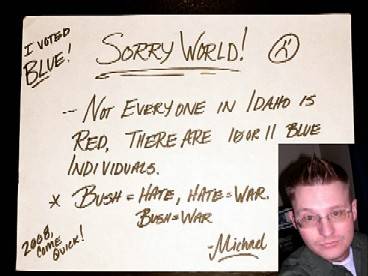 I VOTED
BLUE!
SORRY WORLD!
-- NOT EVERYONE IN IDAHO IS
RED, THERE ARE 10 OR 11 BLUE
INDIVIDUALS.
* BUSH = HATE, HATE = WAR.
BUSH = WAR
2008,
COME
QUICK!
- Michael